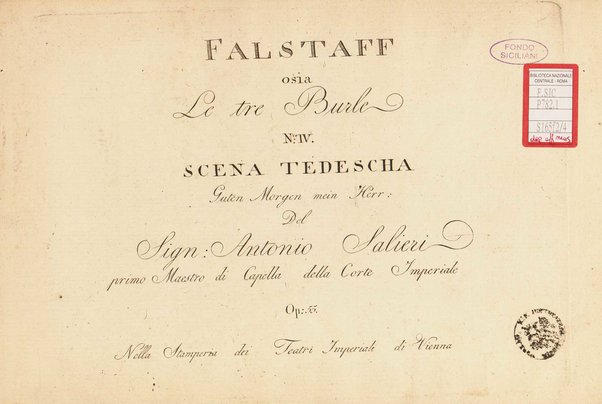 FALSTAFF
osia
Le tre Burle
No: IV.
SCENA TEDESCHA
Guten Morgen mein Herr:
Del
Sign: Antonio Salieri
primo Maestro di Capella della Corte Imperiale
Op: 55.
Nella Stamperia dei Teatri Imperiali di Vienna
FONDO
SICILIANI
BIBLIOTECA NAZIONALE
CENTRALE - ROMA
F.SIC
P782.1
S165f2/4